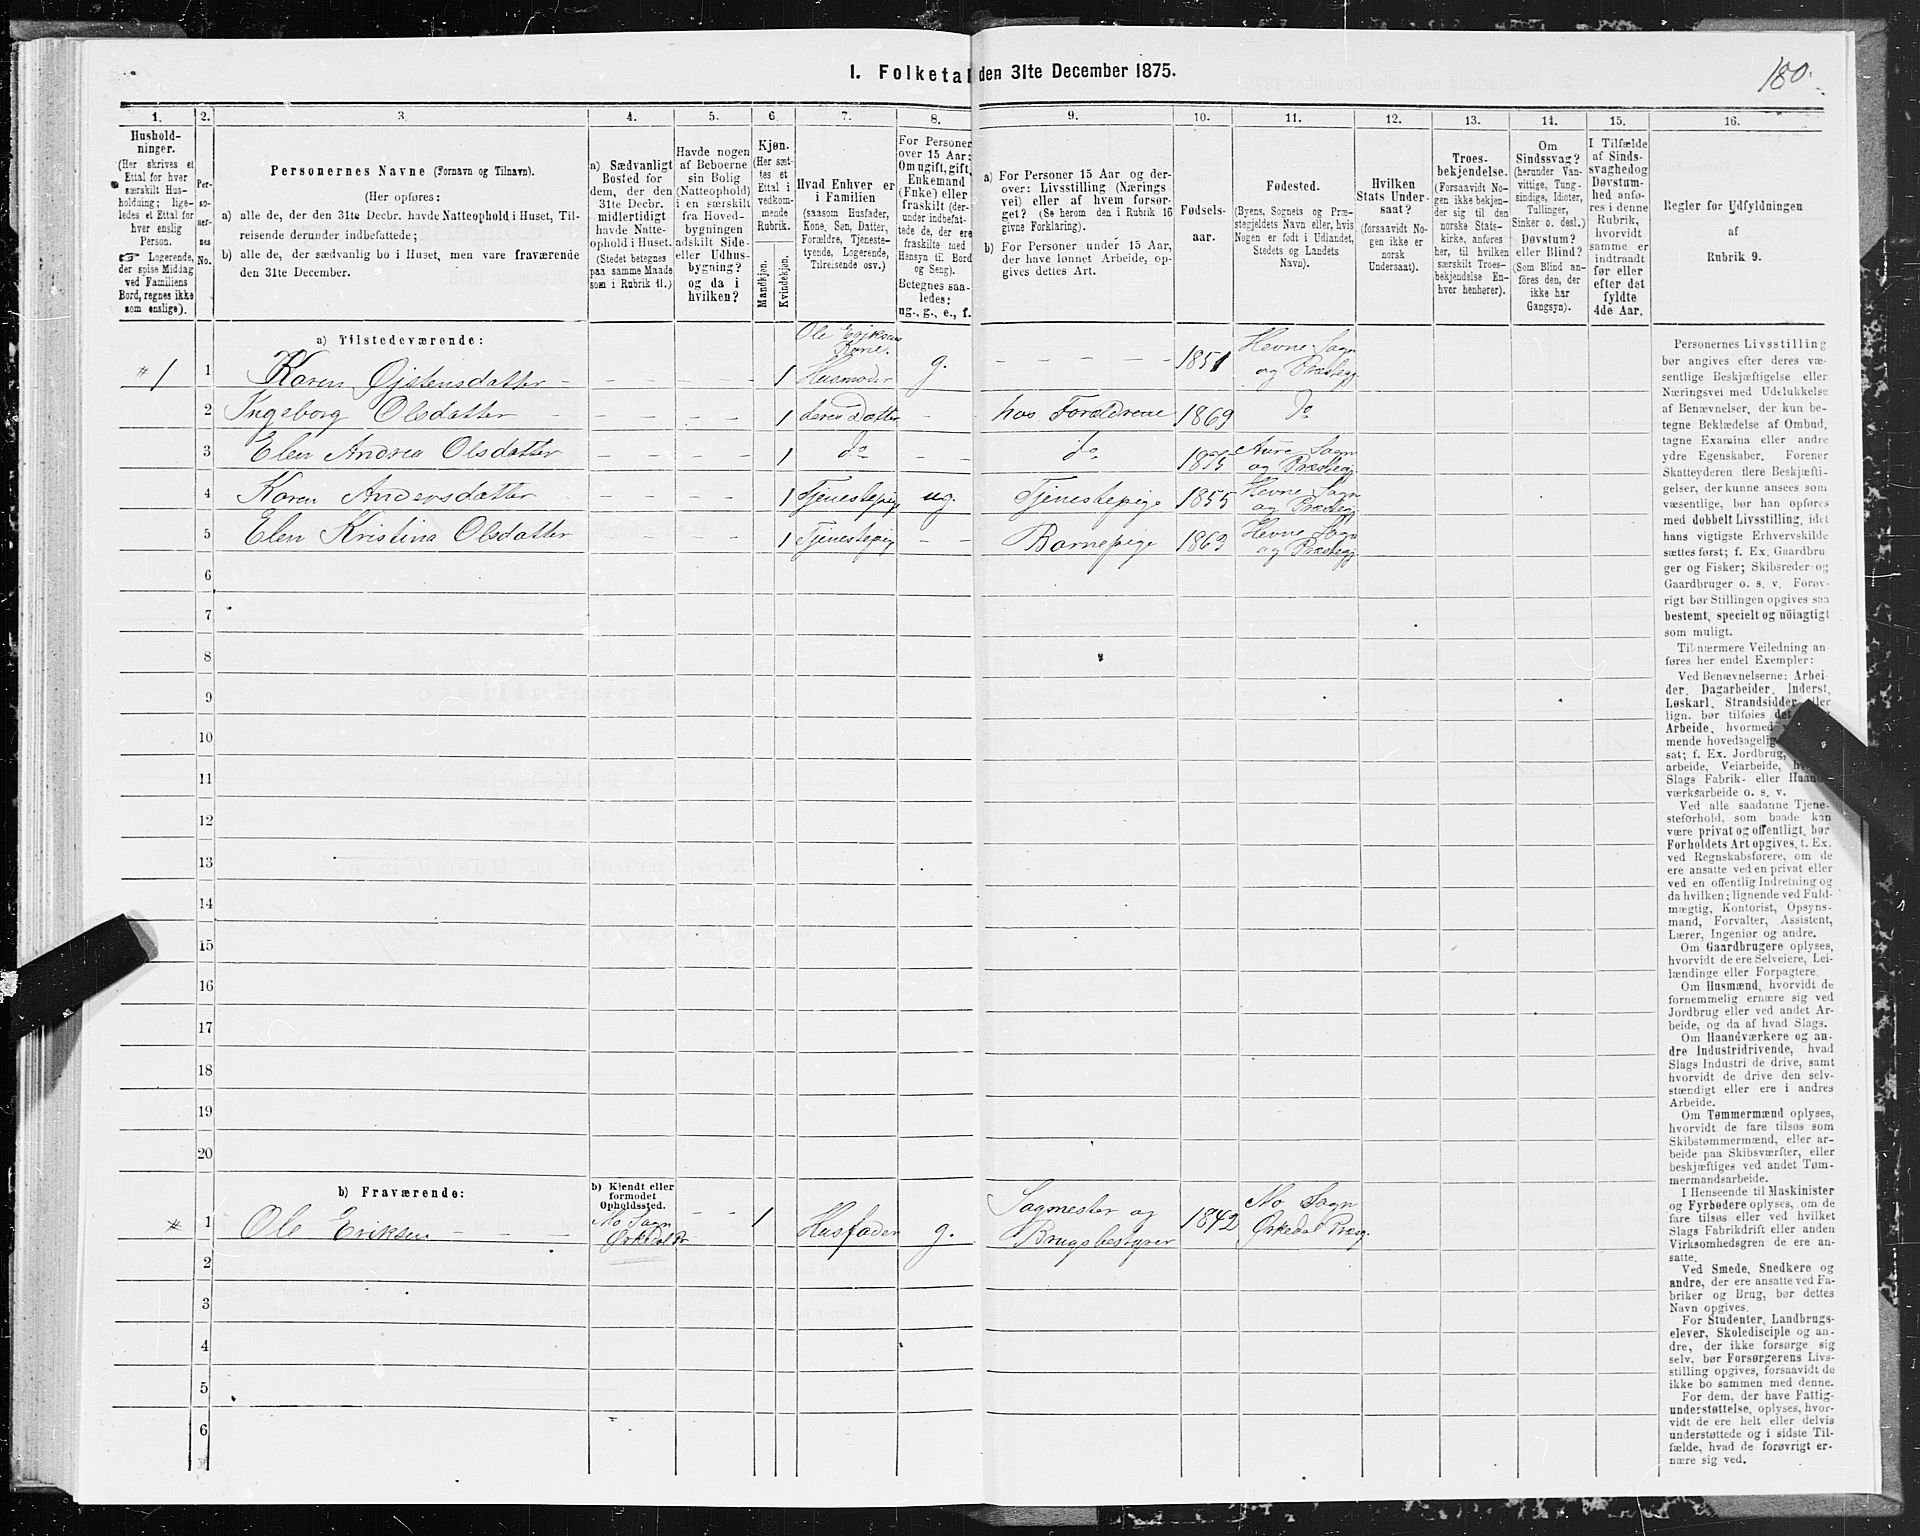 I. Folketal den 31te December 1875.
180.
1.
2.
3.
4.
5.
6.
7.
8.
9.
10.
11.
12.
13.
14.
15.
16.
Hushold-
ninger.
(Her skrives et
Ettal for hver
særskilt Hus-
holdning; lige-
ledes et Ettal for
hver enslig
Person.
☞ Logerende,
der spise Middag
ved Familiens
Bord, regnes ikke
som enslige).
Per-
so-
ner-
nes
No.
Personernes Navne (Fornavn og Tilnavn).
(Her opføres:
a) alle de, der den 31te Decbr. havde Natteophold i Huset, Til-
reisende derunder indbefattede;
b) alle de, der sædvanlig bo i Huset, men vare fraværende
den 31te December.
a) Sædvanligt
Bosted for
dem, der den
31te Decbr.
midlertidigt
havde Natte-
ophold i Huset.
(Stedet betegnes
paa samme Maade
som i Rubrik 11.)
Havde nogen
af Beboerne
sin Bolig
(Natteophold)
i en særskilt
fra Hoved-
bygningen
adskilt Side-
eller Udhus-
bygning?
og da i
hvilken?
Kjøn.
(Her sæt-
tes et
Ettal i
vedkom-
mende
Rubrik.
Mandkjøn.
Kvindekjøn.
Hvad Enhver er
i Familien
(saasom Husfader,
Kone, Søn, Datter,
Forældre, Tjeneste-
tyende, Logerende,
Tilreisende osv.)
For Personer
over 15 Aar:
Om ugift, gift,
Enkemand
(Enke) eller
fraskilt (der-
under indbefat-
tede de, der ere
fraskilte med
Hensyn til Bord
og Seng).
Betegnes saa-
ledes:
ug., g., e., f.
a) For Personer 15 Aar og der-
over: Livsstilling (Nærings
vei) eller af hvem forsør-
get? (Se herom den i Rubrik 16
givne Forklaring).
b) For Personer under 15 Aar,
der have lønnet Arbeide, op-
gives dettes Art.
Fødsels-
aar.
Fødested.
(Byens, Sognets og Præ-
stegjeldets Navn eller, hvis
Nogen er født i Udlandet,
Stedets og Landets
Navn).
Hvilken
Stats Under-
saat?
(forsaavidt No-
gen ikke er
norsk
Undersaat).
Troes-
bekjendelse.
(Forsaavidt No-
gen ikke bekjen-
der sig til den
norske Stats-
kirke, anføres
her, til hvilken
særskilt Troes-
bekjendelse En-
hver henhører).
Om
Sindssvag?
(herunder Van-
vittige, Tung-
sindige, Idioter,
Tullinger,
Sinker o. desl.)
Døvstum?
eller Blind?
(Som Blind an-
føres den, der
ikke har
Gangsyn).
I Tilfælde
af Sinds-
svaghed og
Døvstum-
hed anfø-
res i denne
Rubrik,
hvorvidt
samme er
indtraadt
før eller
efter det
fyldte
4de Aar.
Regler for Udfyldningen
af
Rubrik 9.
a) Tilstedeværende:
1 1 Karen Ojstensdatter - - - 1 Ole Eriksens Kone. Husmoder g. - - - - - 1851 Hevne Sogn og Præstegj
2 Ingeborg Olsdatter - - - 1 deres Datter - hos Forældrene 1869 Do
3 Elen Andrea Olsdatter - - - - 1 do - - do 1875 Aure Sogn og Præstegj
4 Karen Andersdatter - - - - 1 Tjenestepige ug. Tjenestepige 1855 Hevne Sogn og Præstegj
5 Elen Kristina Olsdatter - - - - 1 Tjenestepig - - Barnepige 1863 Hevne Sogn og Præstegj
6
7
8
9
10
11
12
13
14
15
16
17
18
19
20
b) Fraværende:
b) Kjendt eller
formodet
Opholdssted.
1 Ole Eriksen - - - Mo Sogn Ørkedal Pr - - 1 Husfader g. Sagmester og Brugsbestyrer 1842 Mo Sogn Ørkedal Præsg.
2
3
4
5
6
Personernes Livsstilling
bør angives efter deres væ-
sentlige Beskjæftigelse eller
Næringsvei med Udelukkelse
af Benævnelser, der kun be-
tegne Beklædelse af Ombud,
tagne Examina eller andre
ydre Egenskaber. Forener
Skatteyderen flere Beskjæfti-
gelser, der kunne ansees som
væsentlige, bør han opføres
med dobbelt Livsstilling, idet
hans vigtigste Erhvervskilde
sættes først; f. Ex. Gaardbru
ger og Fisker; Skibsreder og
Gaardbruger o. s. v. Forøv-
rigt bør Stillingen opgives saa
bestemt, specielt og nöiagtigt
som muligt.
Til nærmere Veiledning an
føres her endel Exempler:
Ved Benævnelserne: Arbei-
der, Dagarbeider, Inderst,
Løskarl, Strandsidder eller
lign. bør tilføies det
Arbeide, hvormed
mende hovedsagelig
sat; f. Ex. Jordbrug,
arbeide, Veiarbeide,
Slags Fabrik- eller Haand-
værksarbeide o. s. v.
Ved alle saadanne Tjene-
steforhold, som baade kan
være privat og offentligt, bør
Forholdets Art opgives, t. Ex.
ved Regnskabsførere, om de
ere ansatte ved en privat eller
ved en offentlig Indretning og
da hvilken; lignende ved Fuld-
mægtig, Kontorist, Opsyns-
mand, Forvalter, Assistent,
Lærer, Ingeniør og andre.
Om Gaardbrugere oplyses,
hvorvidt de ere Selveiere, Lei-
lændinge eller Forpagtere.
Om Husmænd, hvorvidt de
fornemmelig ernære sig ved
Jordbrug eller ved andet Ar-
beide, og da af hvad Slags.
Om Haandværkere og an-
dre Industridrivende, hvad
Slags Industri de drive, samt
hvorvidt de drive den selv-
stændigt eller ere i andres
Arbeide.
Om Tømmermænd oplyses,
hvorvidt de fare tilsøs som
Skibstømmermænd, eller ar-
beide paa Skibsværfter, eller
beskjæftiges ved andet Tøm-
mermandsarbeide.
I Henseende til Maskinister
og Fyrbødere oplyses, om de
fare tilsøs eller ved hvilket
Slags Fabrikdrift eller anden
Virksomhedsgren de ere an-
satte.
Ved Smede, Snedkere og
andre, der ere ansatte ved Fa-
briker og Brug, bør dettes
Navn opgives.
For Studenter, Landbrugs-
elever, Skoledisciple og an-
dre, der ikke forsørge sig
selv, bør Forsørgerens Livs-
stilling opgives, forsaavidt de
ikke bo sammen med denne.
For dem, der have Fattig-
understøttelse, oplyses, hvor-
vidt de ere helt eller delvis
understøttede og i sidste Til-
fælde, hvad de forøvrigt er-
nære sig ved.